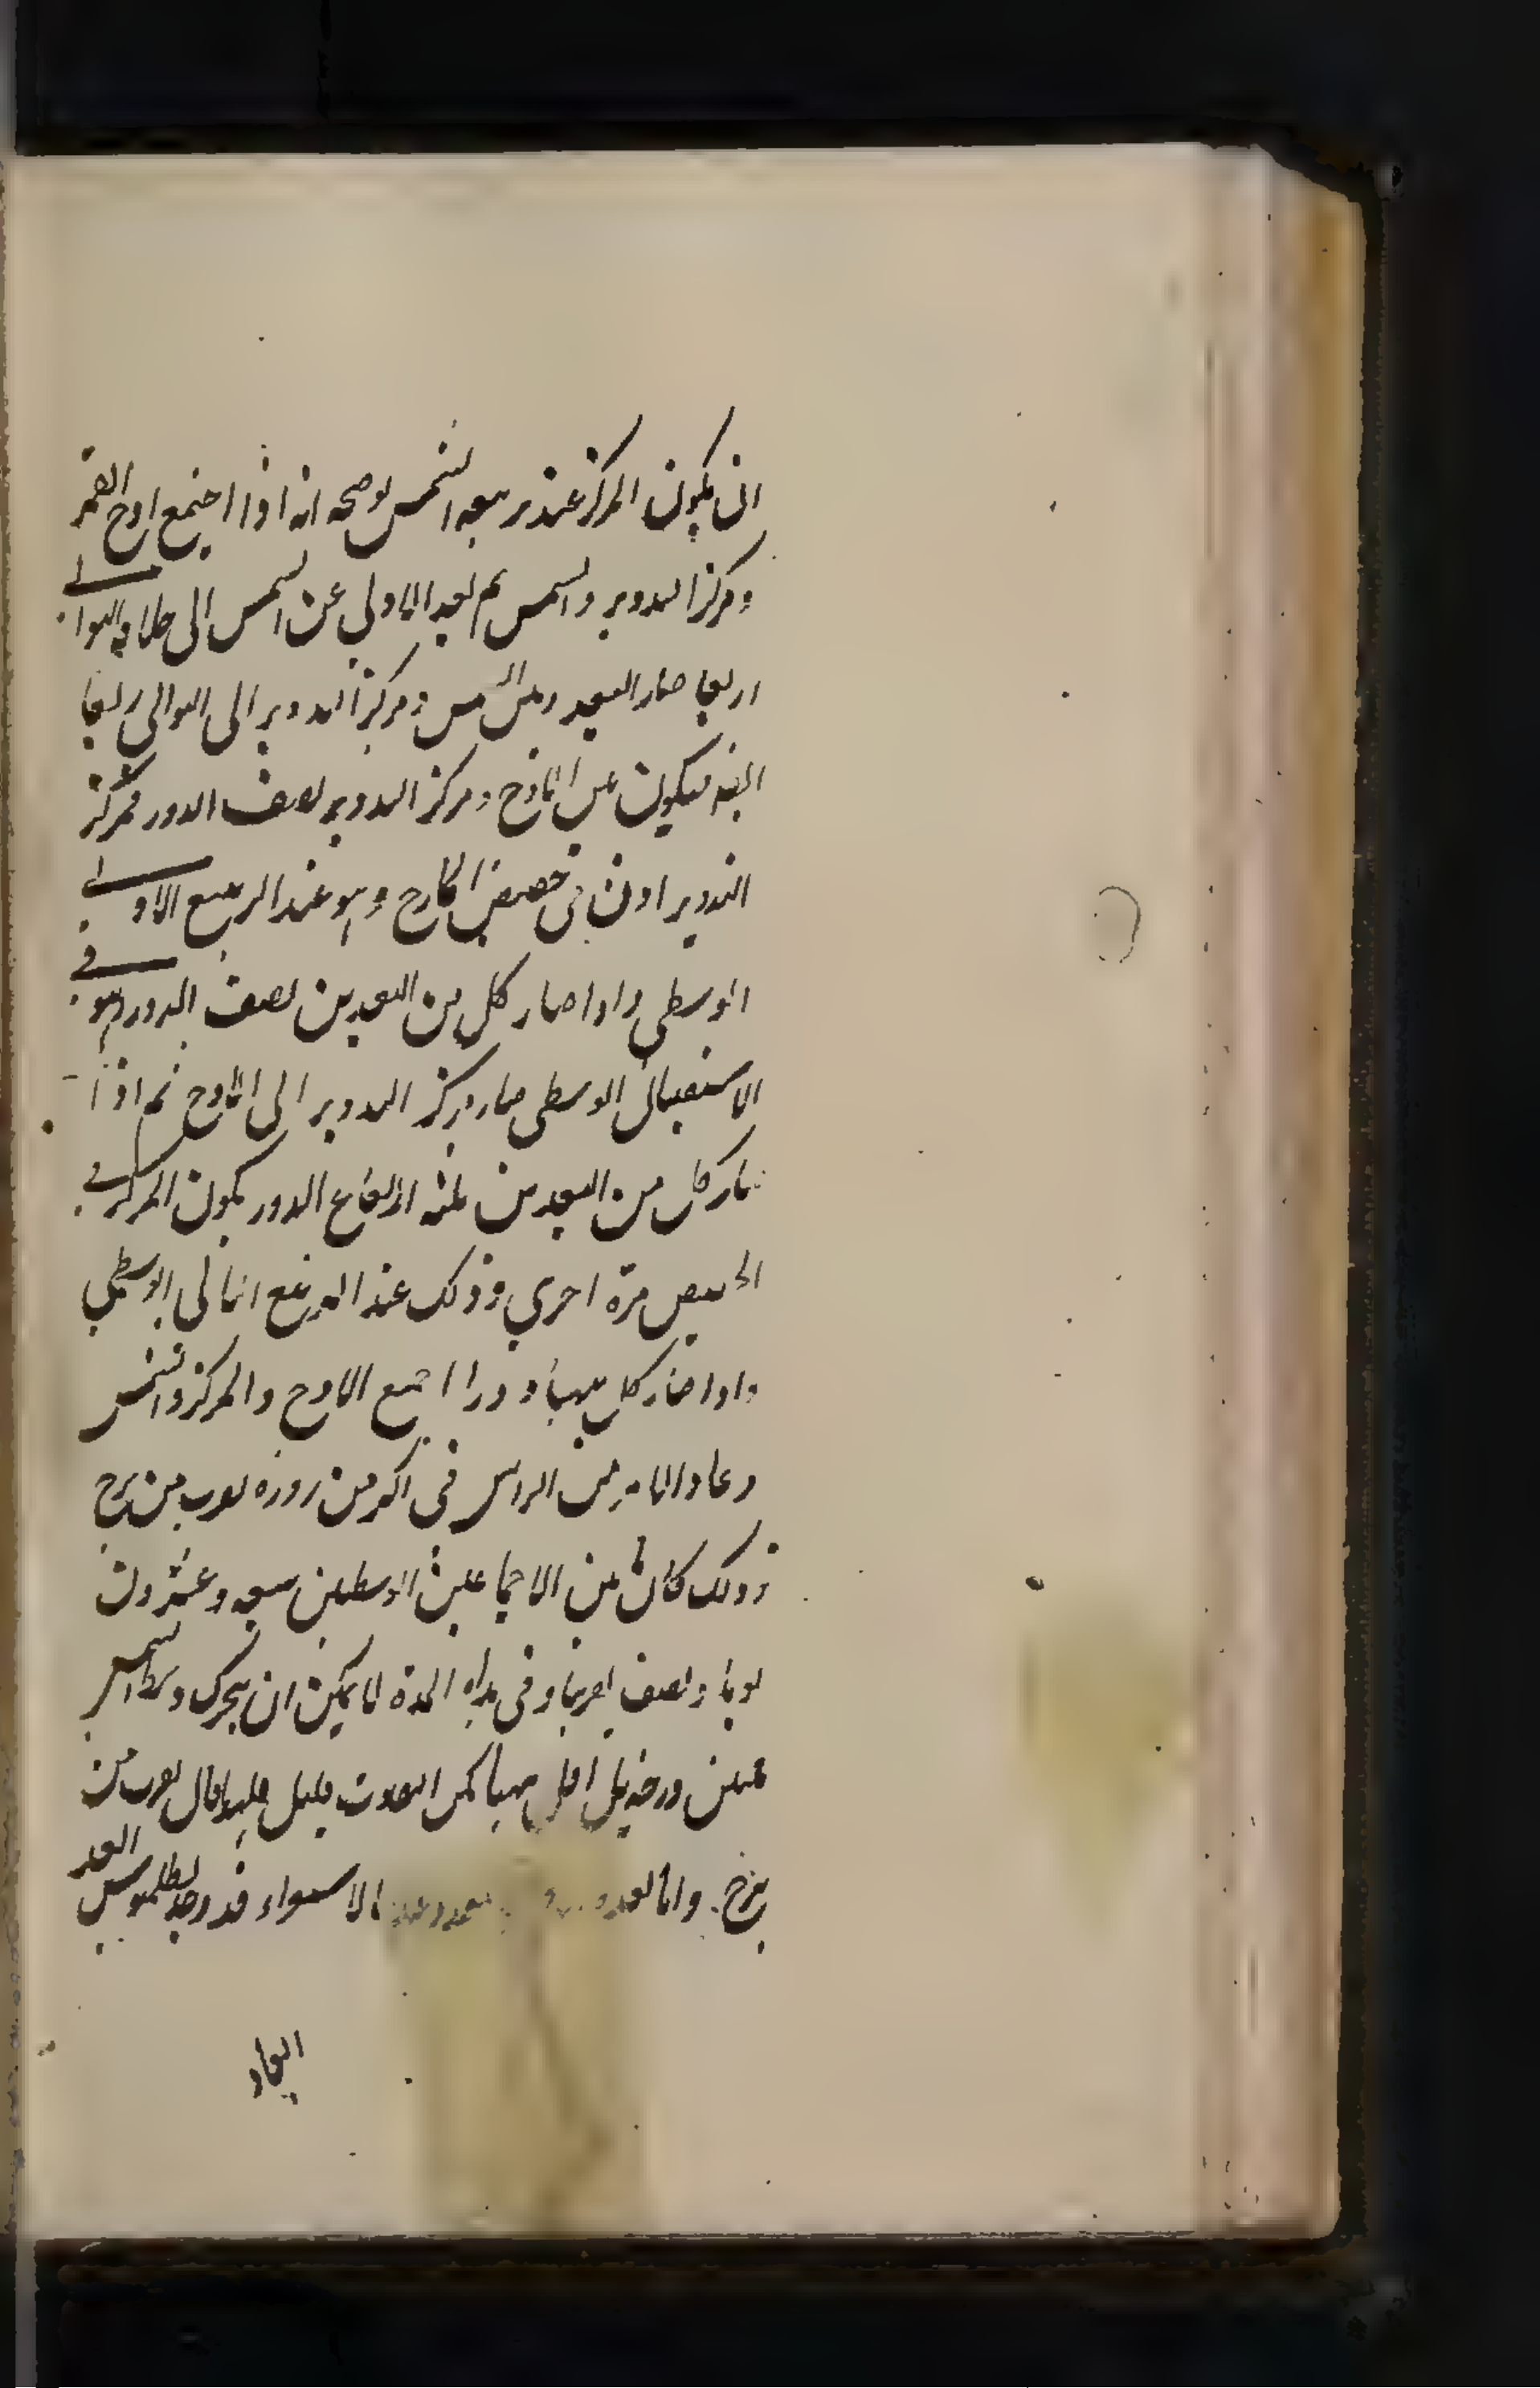 ان يكون المركز عند تربيعه الشمس توضيحه انه اذا اجتمع اوج القمر
ومركز التدوير والشمس ثم بعد الاوج عن الشمس الى خلاف التوالي
ربعا صار البعد بين الشمس ومركز التدوير الى التوالي ربعا
ايضا فيكون بين الاوج ومركز التدوير نصف الدور فمركز
التدوير اذن في حضيض الخارج وهو عند التربيع الاول
الوسطي واذا صار كل من البعدين نصف الدور وهو في
الاستقبال الوسطي صار مركز التدوير الى الاوج ثم اذا
صار كل من البعدين ثلثة ارباع الدور يكون المركز في
الحضيض مرة اخرى وذلك عند التربيع الثاني الوسطي
واذا صار كل منهما دورا اجتمع الاوج والمركز والشمس
وعاد من الراس في اكثر من دورة بقريب من برج
وذلك كان بين الاجتماعين الوسطيين تسعة وعشرون
يوما ونصف تقريبا وفي هذه المدة لا يمكن ان يتحرك وسط الشمس
ثلثين درجة بل اقل منها لكن التفاوت قليل فلهذا قال بقريب من
برج واما الاستواء فقد وجد بطلميوس البعد